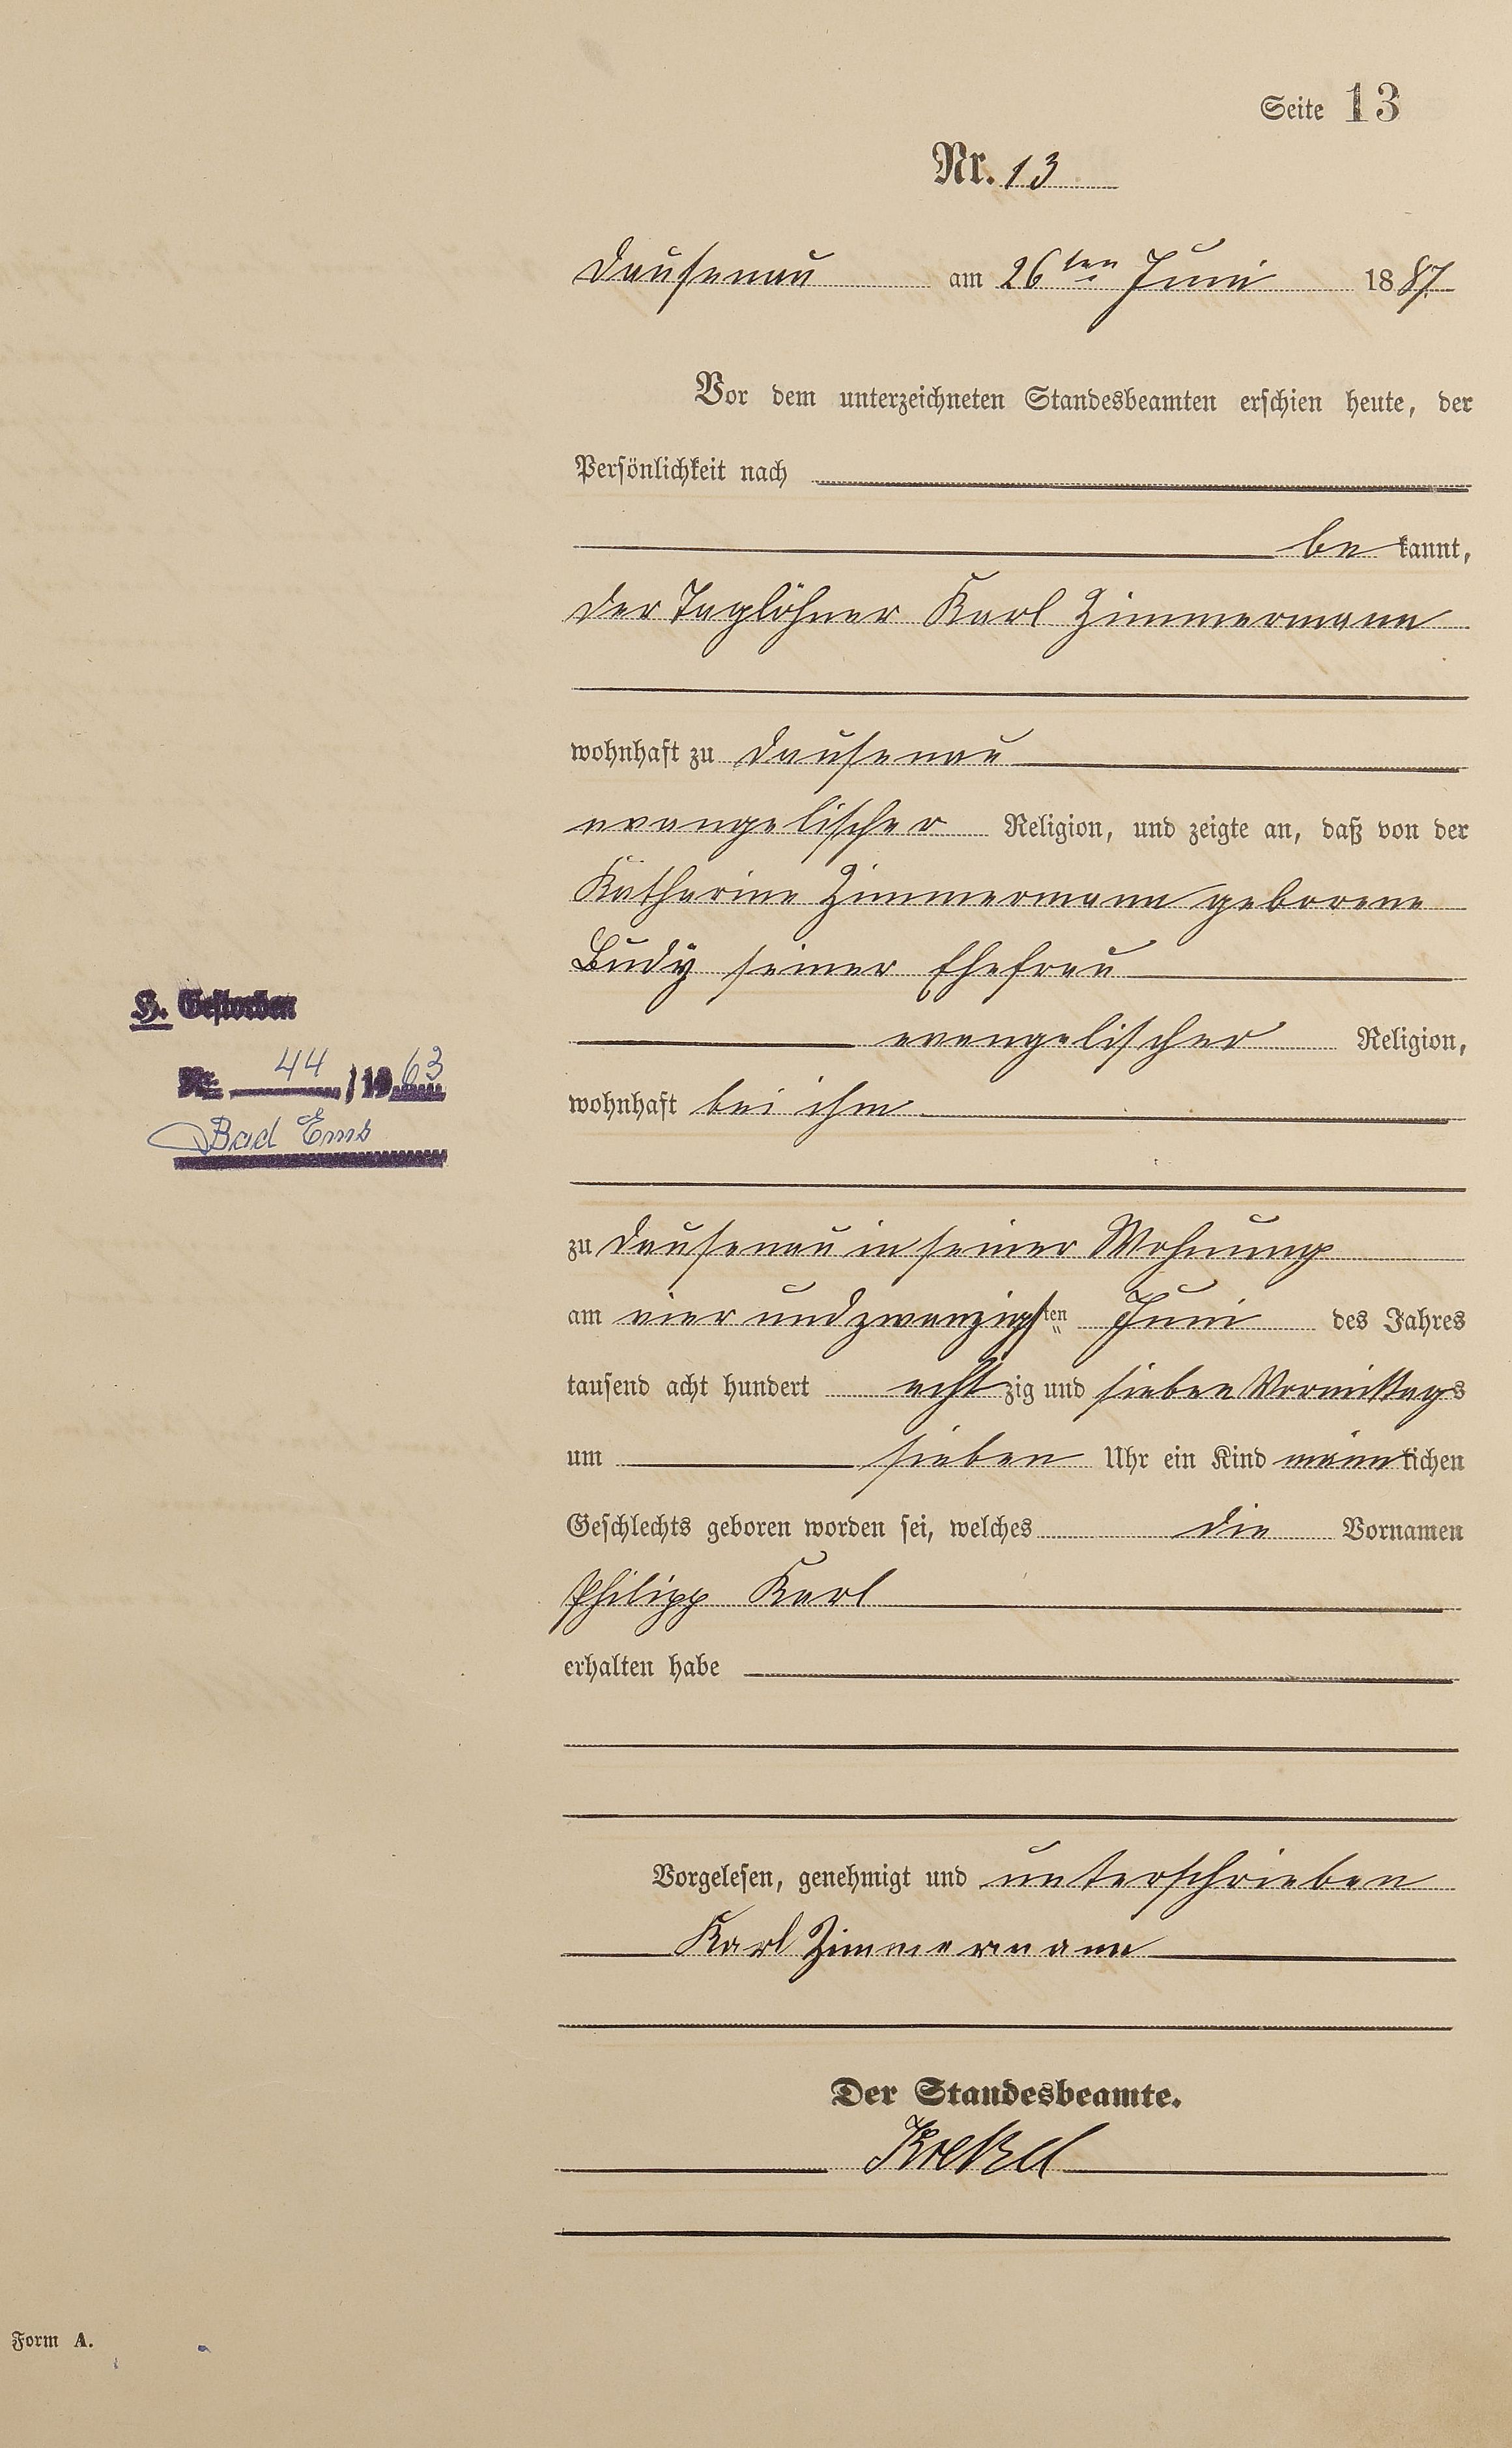 Seite 13
Nr. 13
Dausenau am 26ten Juni 1887
Vor dem unterzeichneten Standesbeamten erschien heute, der
Persönlichkeit nach
be kannt,
der Taglöhner Karl Zimmermann
wohnhaft zu Dausenau
evangelischer Religion, und zeigte an, daß von der
Katharine Zimmermann geborene
Budÿ seiner Ehefrau
evangelischer Religion,
wohnhaft bei ihm
zu Dausenau in seiner Wohnung
am vier und zwanzigsten Juni des Jahres
tausend acht hundert acht zig und sieben Vormittags
um sieben Uhr ein Kind männlichen
Geschlechts geboren worden sei, welches die Vornamen
Philipp Karl
erhalten habe
Vorgelesen, genehmigt und unterschrieben
Karl Zimmermann
Der Standesbeamte.
H. Gestorben
Nr. 44 /1963
Bad Ems
Form A.